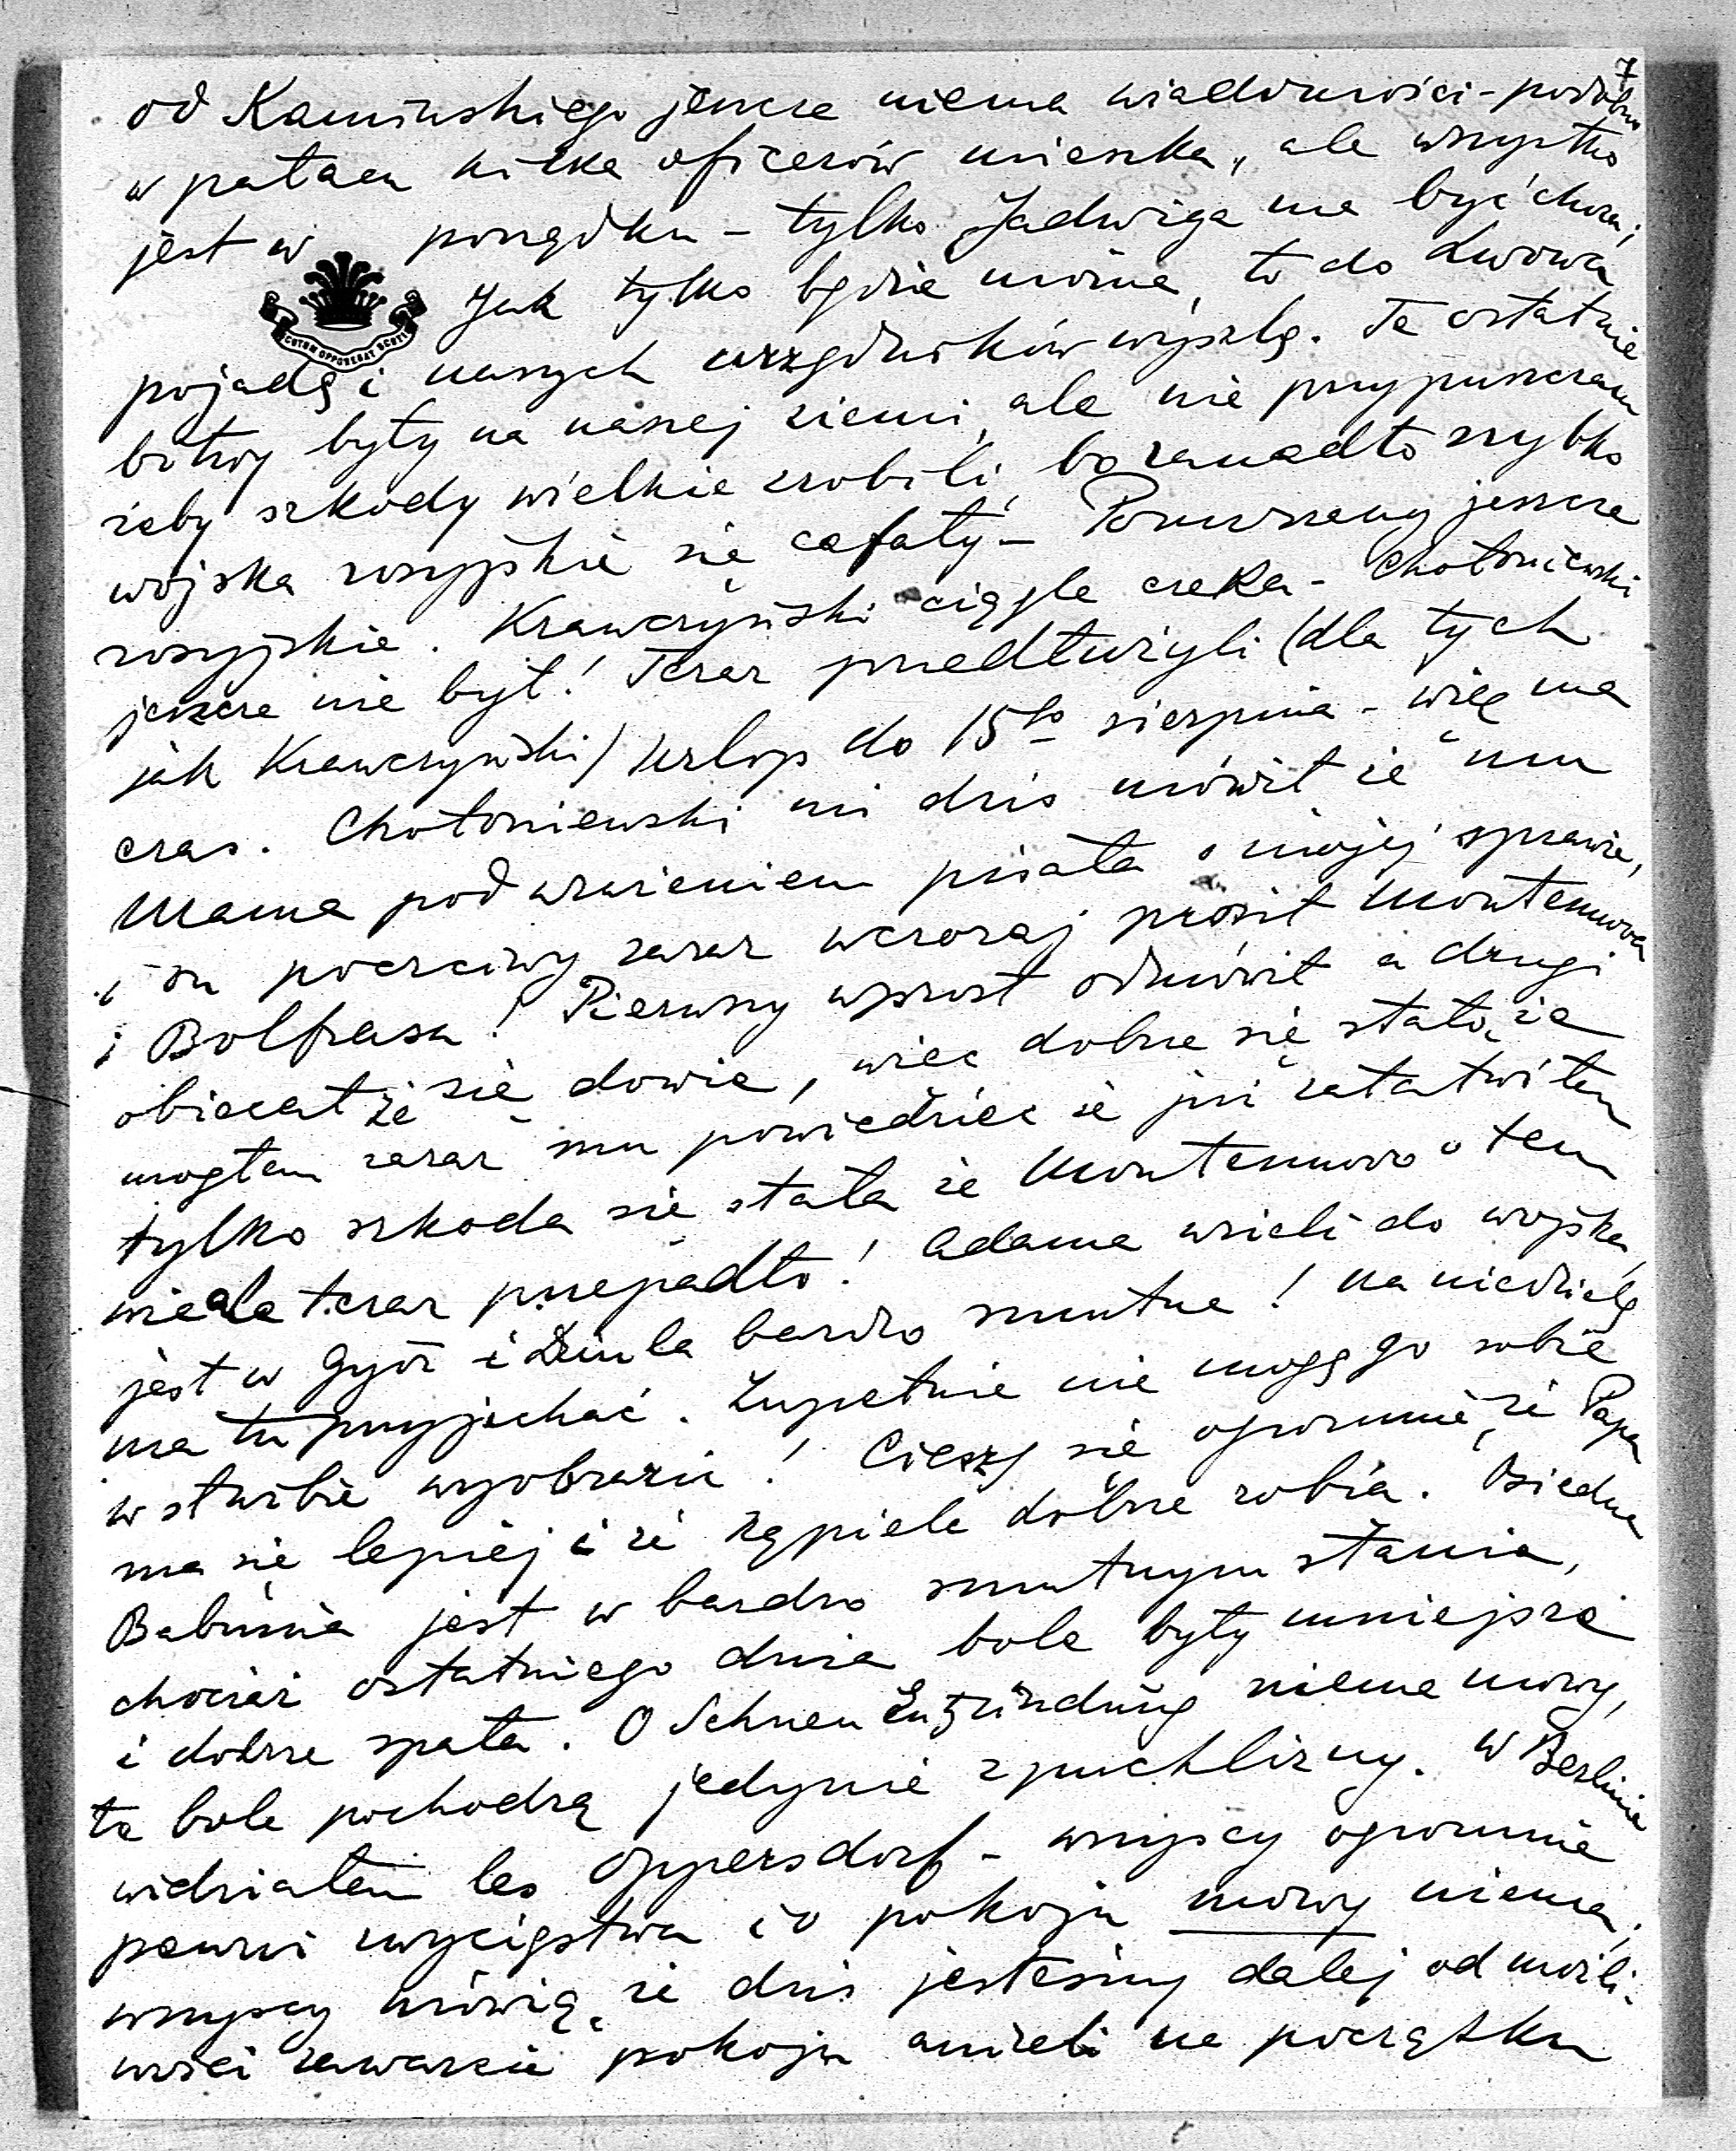 7
od Kamińskiego jeszcze niema wiadomości - podobno
w pałacu kilka oficerów mieszka, ale wszystko
jest w porządku - tylko Jadwiga ma być chora,
Jak tylko będzie można, to do Lwowa
CUTOM OPPONERAT SCUTO
pojadę i naszych urzędników wyszlę. Te ostatnie
bitwy były na naszej ziemi, ale nie przypuszczam
żeby szkody wielkie zrobili, bo zanadto szybko
wojska rosyjskie się cofały - jeszcze
rosyjskie. Krawczyński ciągle czeka - Chołoniewski
jeszcze nie był! Teraz przedłużyli (dla tych
jak Krawczyński) urlop do 15go sierpnia - więc ma
czas. Chołoniewski mi dziś mówił że mu
Mama pod wrażeniem pisała o mojej sprawie,
i on poczciwy zaraz wczoraj prosił Montenuova
i Bolfrasa! Pierwszy wprost odmówił a drugi
obiecał że się dowie, więc dobrze się stało że
mogłem zaraz mu powiedzieć że już załatwiłem
tylko szkoda się stała że Montenuovo o tem
wie ale teraz przepadło! Adama wzieli do wojska,
jest w Györ i bardzo smutna! Na niedzielę
ma tu przyjechać. Zupełnie nie mogę go sobie
w służbie wyobrazić! Cieszę się ogromnie, że Papa
ma się lepiej i że kąpiele dobrze robią. Biedna
Babunia jest w bardzo smutnym stanie,
chociaż ostatniego dnia bole były mniejsze
i dobrze spała. O Sehnen Entzündung niema mowy,
te bole pochodzą jedynie z puchlizny. W Berlinie
widziałem les Oppersdorf - wszyscy ogromnie
pewni zwycięstwa i o pokoju mowy niema,
wszyscy mówią, że dziś jesteśmy dalej od możli-
wości zawarcia pokoju aniżeli na początku